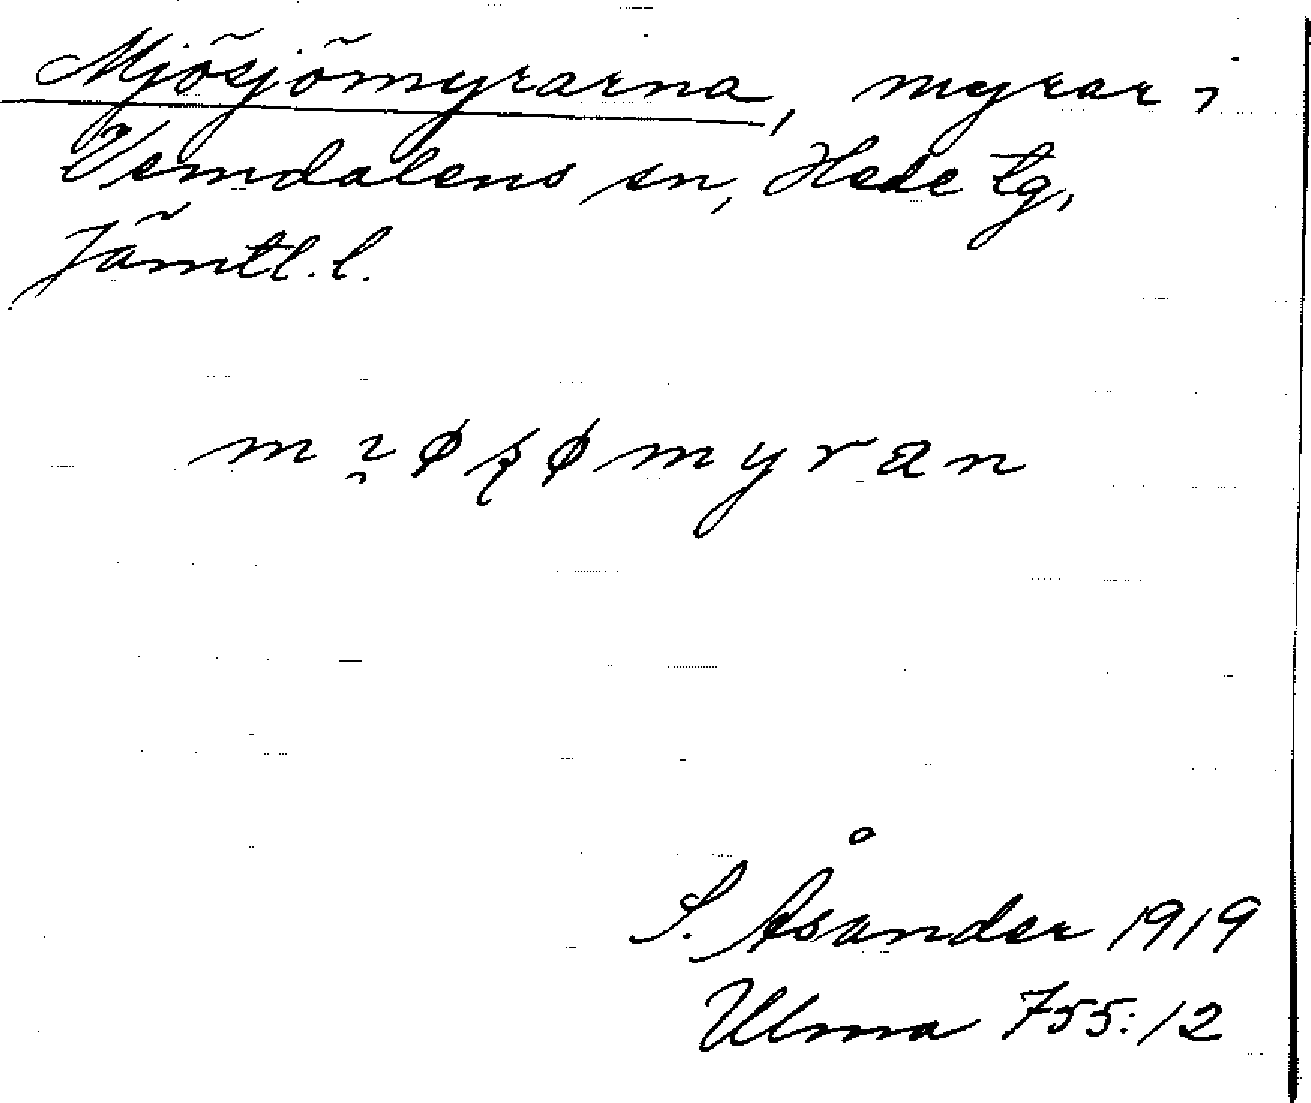 Mjösjömyrarna, myrar i
Vemdalens sn, Hede tg,
Jämtl. l.
S. Åsander 1919
Ulma 755:12